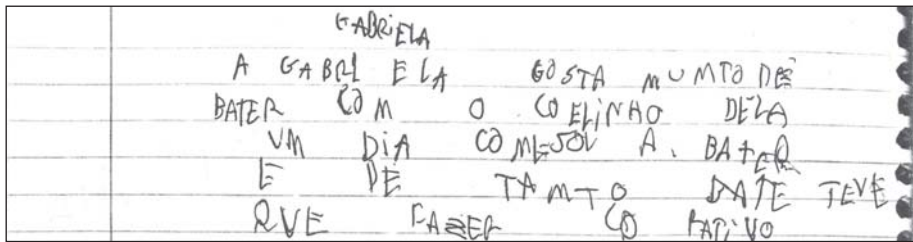 GABRiELA
A GABRI ELA GOSTA MUMTO DE
BATER COM O COELiNHO DELA
UM DiA COMESOU A. BATER
E DE TAMTO BATE TEVE
QUE FAZER CO